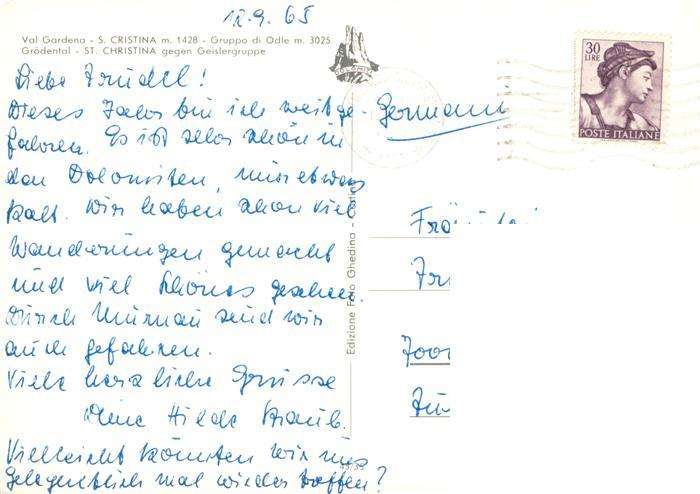 12.9.65
Val Gardena - S. CRISTINA m. 1428 - Gruppo di Odle m. 3025
Grödental - ST. CHRISTINA gegen Geislergruppe
Liebe Trudel!
Dieses Jahr bin ich weit ge-
fahren. Es ist sehr schön in
den Dolomiten, nur etwas
kalt. Wir haben schon viel
Wanderungen gemacht
und viel Schönes gesehen.
Durch Murnau sind wir
auch gefahren.
Viele herzliche Grüsse
Deine Hilde
Vielleicht könnten wir uns
gelegentlich mal wieder treffen?
DOLOMITI
Edizione Foto Ghedina -
30
LIRE
POSTE ITALIANE
Germania